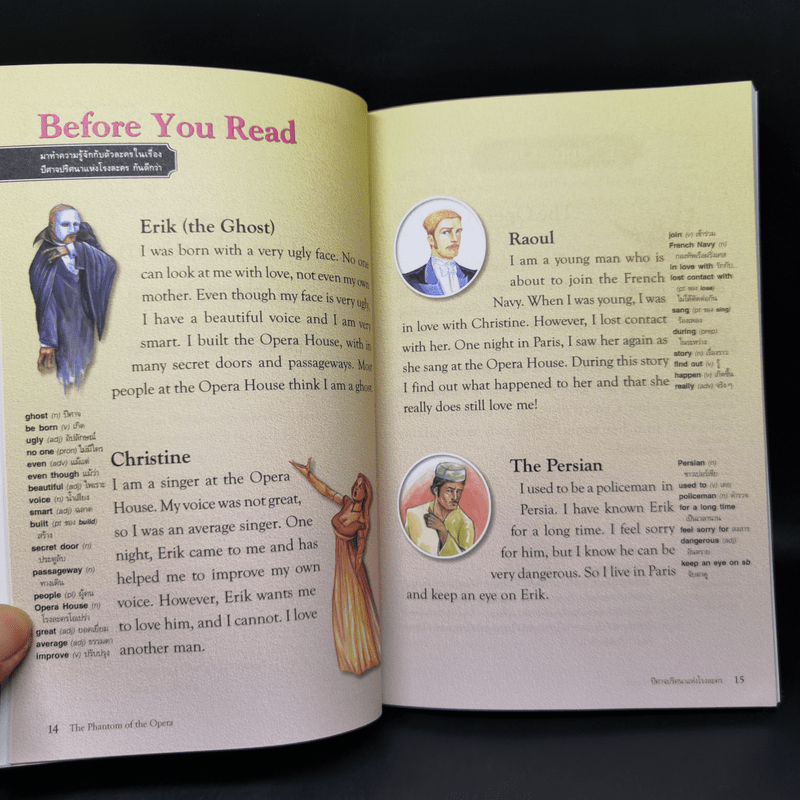 Before You Read
มาทำความรู้จักกับตัวละครในเรื่อง
ปีศาจปริศนาแห่งโรงละคร กันดีกว่า
Erik (the Ghost)
I was born with a very ugly face. No one
can look at me with love, not even my own
mother. Even though my face is very ugly,
I have a beautiful voice and I am very
smart. I built the Opera House, with in
many secret doors and passageways. Most
people at the Opera House think I am a ghost
ghost (n) ปีศาจ
be born (v) เกิด
ugly (adj) อัปลักษณ์
no one (pron) ไม่มีใคร
even (adv) แม้แต่
even though แม้ว่า
beautiful (adj) ไพเราะ
voice (n) น้ำเสียง
smart (adj) ฉลาด
built (pt ของ build)
สร้าง
secret door (n)
ประตูลับ
passageway (n)
ทางเดิน
people (pl) ผู้คน
Opera House (n)
โรงละครโอเปร่า
great (adj) ยอดเยี่ยม
average (adj) ธรรมดา
improve (v) ปรับปรุง
Christine
I am a singer at the Opera
House. My voice was not great,
so I was an average singer. One
night, Erik came to me and has
helped me to improve my own
voice. However, Erik wants me
to love him, and I cannot. I love
another man.
14 The Phantom of the Opera
Raoul
I am a young man who is
about to join the French
Navy. When I was young, I was
in love with Christine. However, I lost contact
with her. One night in Paris, I saw her again as
she sang at the Opera House. During this story
I find out what happened to her and that she
really does still love me!
join (v) เข้าร่วม
French Navy (n)
กองทัพเรือฝรั่งเศส
in love with รักกับ...
lost contact with
(pt ของ lose)
ไม่ได้ติดต่อกับ
sang (pt ของ sing)
ร้องเพลง
during (prep)
ในระหว่าง
story (n) เรื่องราว
find out (v) รู้
happen (v) เกิดขึ้น
really (adv) จริงๆ
The Persian
I used to be a policeman in
Persia. I have known Erik
for a long time. I feel sorry
for him, but I know he can be
very dangerous. So I live in Paris
and keep an eye on Erik.
Persian (n)
ชาวเปอร์เซีย
used to (v) เคย
policeman (n) ตำรวจ
for a long time
เป็นเวลานาน
feel sorry for สงสาร
dangerous (adj)
อันตราย
keep an eye on sb
จับตาดู
ปีศาจปริศนาแห่งโรงละคร 15